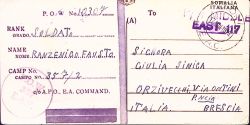 P.O.W No. 10304
RANK
GRADO. SOLDATO
NAME
NOME. RANZENIGO FAUSTO
CAMP No.
CAMPO No. 357/2
c/o A.P.O. E.A. COMMAND.
(A)
To
SOMALIA
ITALIANA
EAST 117
SIGNORA
GIULIA SINICA
ORZIVECCHI VIA
ITALIA. BRESCIA